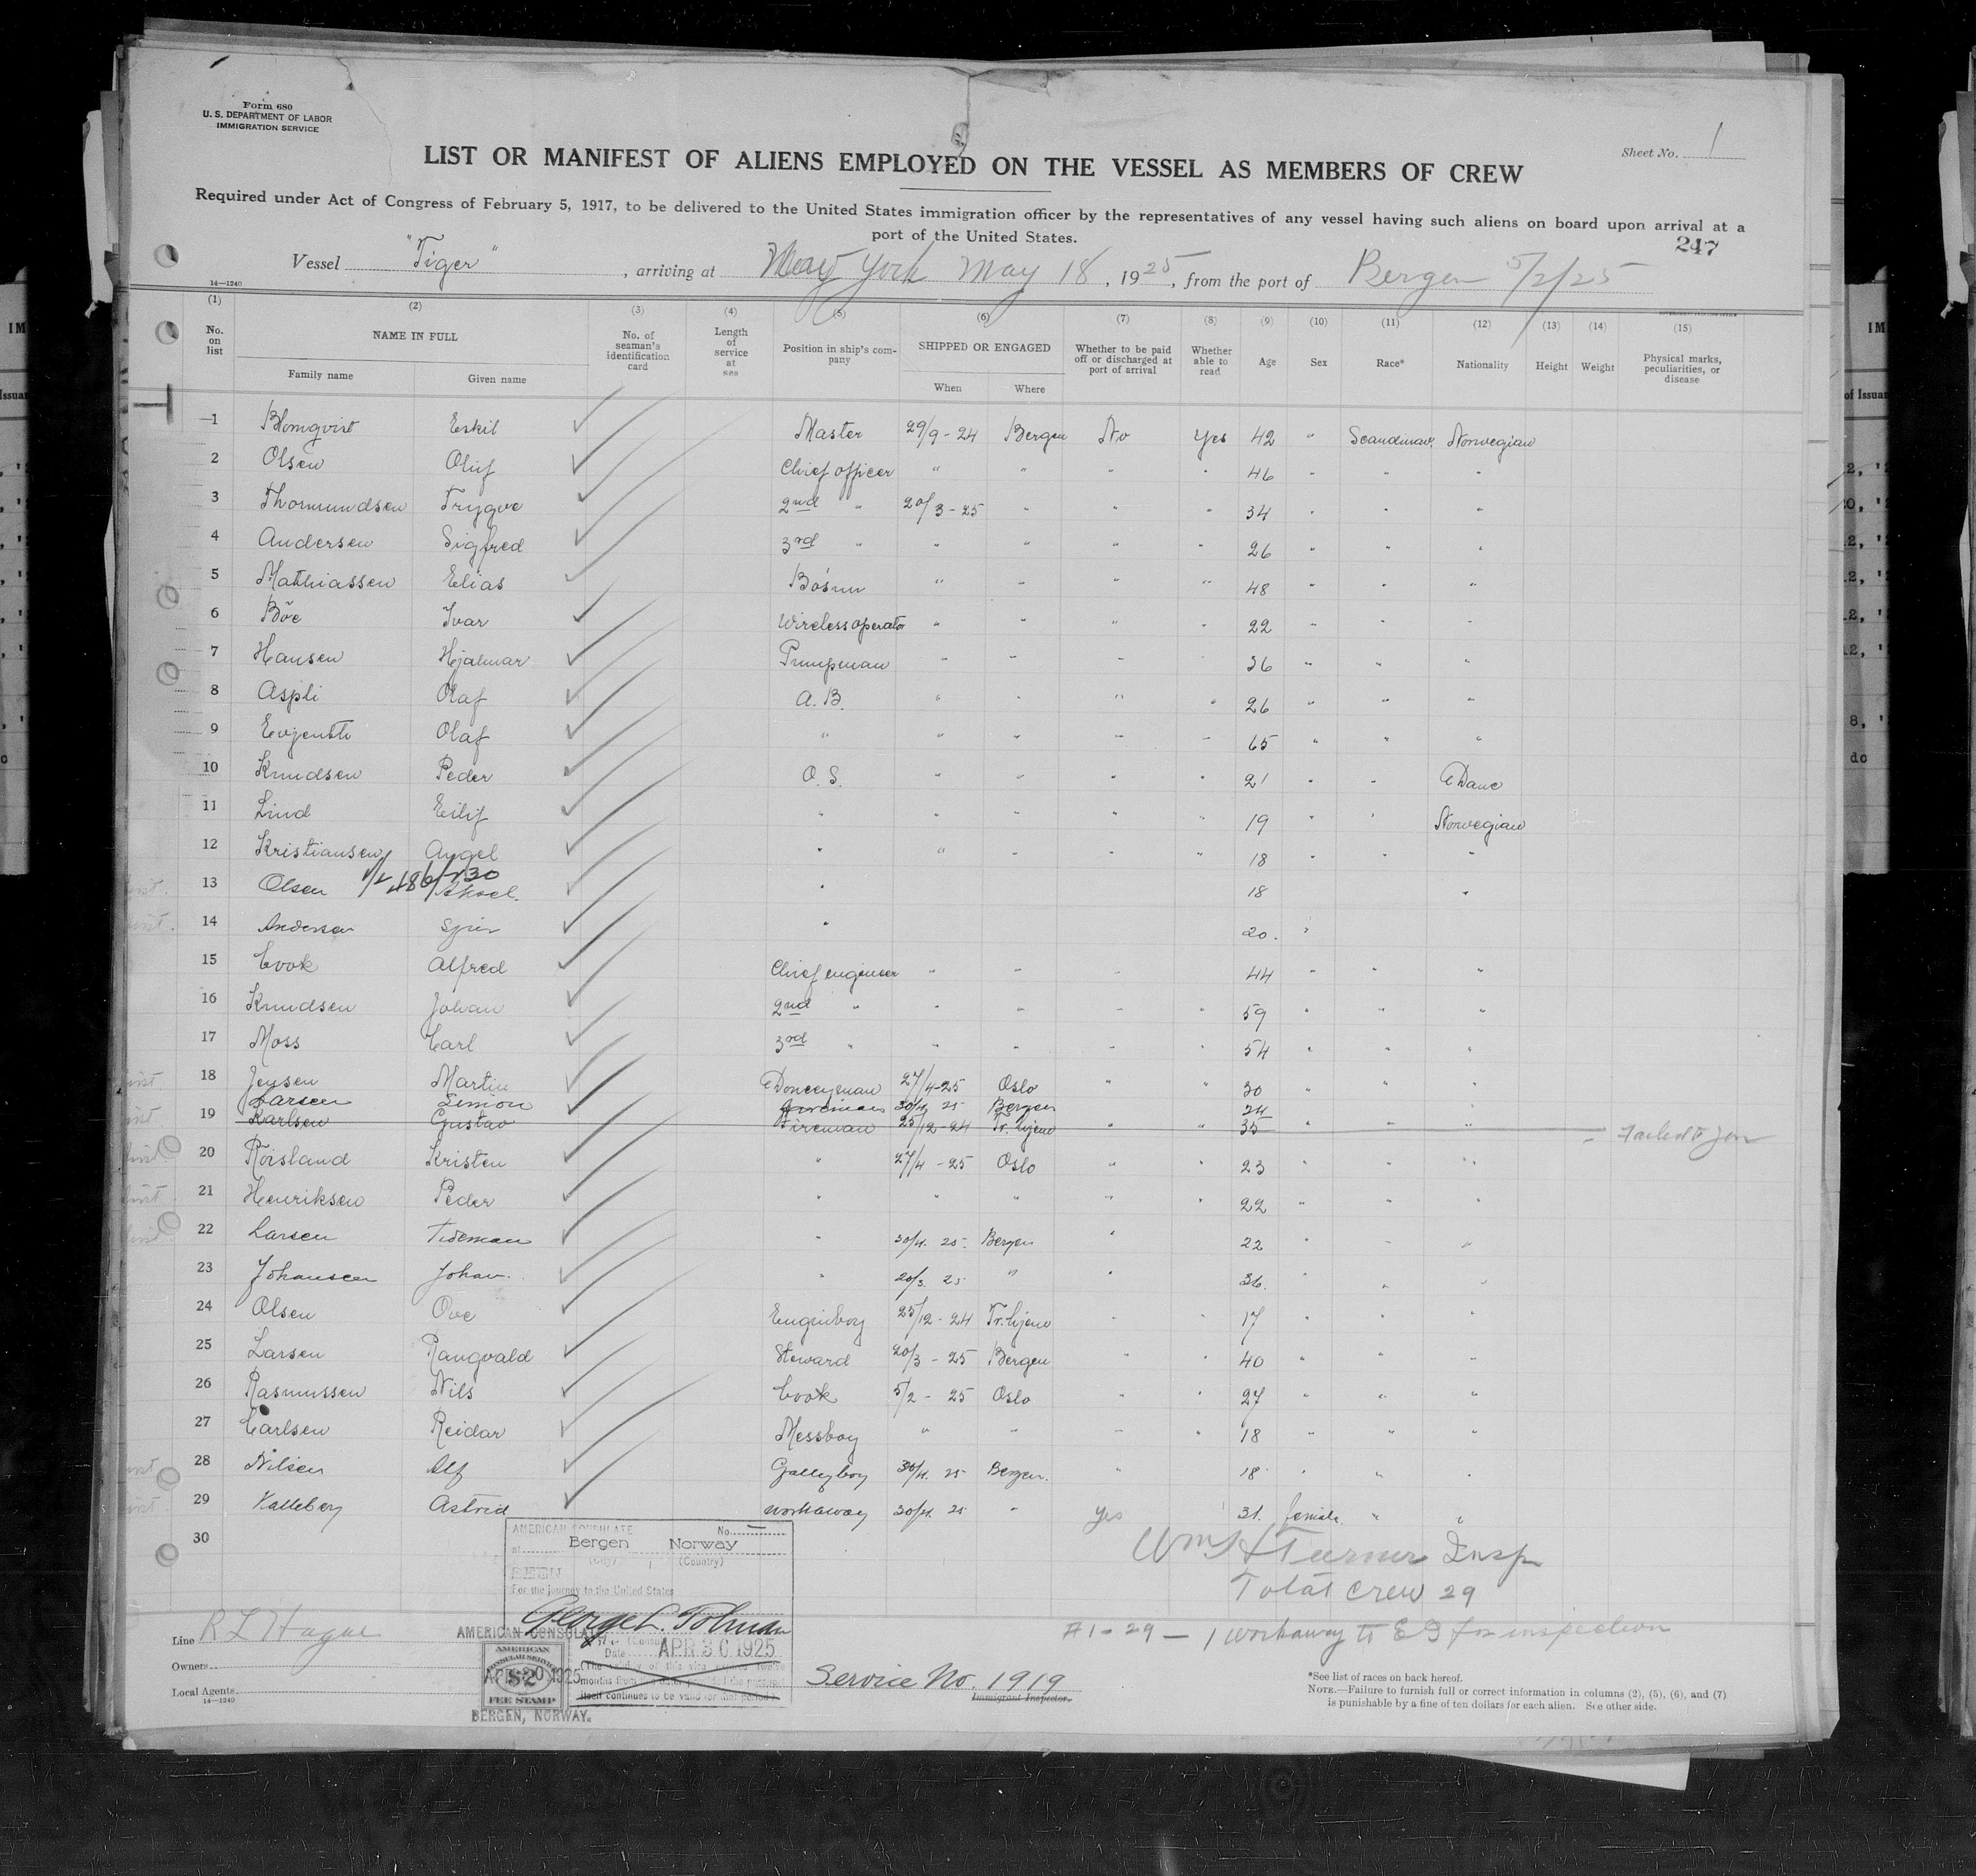 Form 680
U. S. DEPARTMENT OF LABOR
IMMIGRATION SERVICE
Sheet No. 1
LIST OR MANIFEST OF ALIENS EMPLOYED ON THE VESSEL AS MEMBERS OF CREW
Required under Act of Congress of February 5, 1917, to be delivered to the United States immigration officer by the representatives of any vessel having such aliens on board upon arrival at a
port of the United States.
247
Vessel "Tiger", arriving at New York May 18, 1925, from the port of Bergen 5/2/25
14—1240
(1) (2) (3) (4) (5) (6) (7) (8) (9) (10) (11) (12) (13) (14) (15)
No. on list NAME IN FULL No. of seaman's identification card Length of service at sea Position in ship's company SHIPPED OR ENGAGED Whether to be paid off or discharged at port of arrival Whether able to read Age Sex Race* Nationality Height Weight Physical marks, peculiarities, or disease
Family name Given name When Where
1 Blomqvist Eskil Master 29/9-24 Bergen No Yes 42 " Scandinav. Norwegian
2 Olsen Oluf Chief officer " " " " 46 " " "
3 Thommundsen Trygve 2nd " 20/3-25 " " " 34 " " "
4 Andersen Sigfred 3rd " " " " " 26 " " "
5 Mathiassen Elias Bo'sun " " " " 48 " " "
6 Böe Ivar Wireless operator " " " " 22 " " "
7 Hansen Hjalmar Pumpman " " " 36 " " "
8 Aspli Olaf A.B. " " " " 26 " " "
9 Olaf " " " " " 65 " " "
10 Knudsen Peder O.S. " " " " 21 " " Dane
11 Lind Eilif " " " " " 19 " " Norwegian
12 Kristiansen " " " " " 18 " " "
13 Olsen Aksel. " 18 "
14 Andersen " 20. "
15 Cook Alfred Chief engineer " " " 44 " " "
16 Knudsen Johan 2nd " " " " " 59 " " "
17 Moss Carl 3rd " " " " " 54 " " "
18 Jensen Martin Donceyman 27/4-25 Oslo " " 30 " " "
Larsen Simon Fireman 30/4 25 Bergen 24 "
19 Karlsen Gustav Fireman 25/12-24 Tr.hjem " " 35 " " " Failed to join
20 Röisland Kristen " 27/4-25 Oslo " " 23 " " "
21 Henriksen Peder " " " " " 22 " " "
22 Larsen Tideman " 30/4. 25. Bergen " 22 " " "
23 Johansen Johan. " 20/3. 25 " " 36. " " "
24 Olsen Ove Enginboy 25/12-24 Tr.hjem " " 17 " " "
25 Larsen Rangvald Steward 20/3-25 Bergen " " 40 " " "
26 Rasmussen Nils Cook 5/2-25 Oslo " " 27 " " "
27 Carlsen Reidar Messboy " " " " 18 " " "
28 Nilsen Alf Galleyboy 30/4. 25 Bergen. " 18 " " "
29 Kalleberg Astrid workaway 30/4. 25 " Yes 31. female. " "
30
AMERICAN CONSULATE No.
at Bergen Norway
(City) (Country)
SEEN
For the journey to the United States
George L. Tolman
Date APR 30 1925
AMERICAN CONSULATE
APR 30 1925
AMERICAN CONSULAR SERVICE
$2
FEE STAMP
BERGEN, NORWAY.
Wm H Turner Insp
Total crew 29
#1-29 — 1 workaway to EI for inspection
Line R L Hague
Owners
Local Agents
14—1240
Service No. 1919
Immigrant Inspector.
*See list of races on back hereof.
NOTE.—Failure to furnish full or correct information in columns (2), (5), (6), and (7)
is punishable by a fine of ten dollars for each alien. See other side.